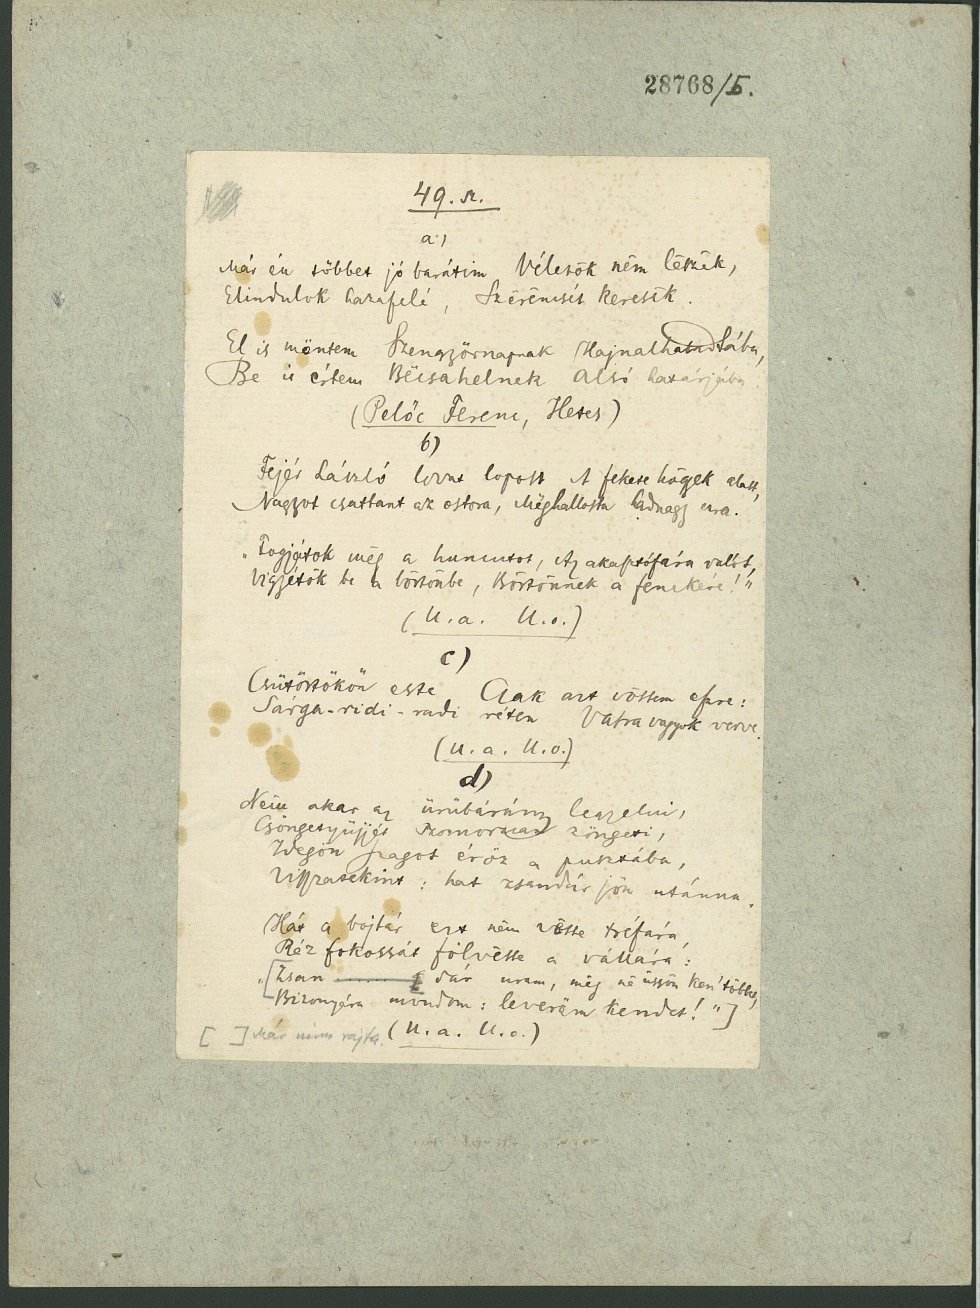 28768/5.
49. sz.
a)
Már én többet jó barátim Véletök nēm lēszēk,
Elindulok hazafelé, Szērēncsét keresēk.
El is möntem Szengyörnapnak Hajnalhatadtába,
Be is értem Bécsahelnek Alsó határjába
(Pelőc Ferenc, Hetes)
b)
Fejér László lovat lopott A fekete högyek alatt,
Nagyot csattant az ostora, Mēghallotta hadnagy ura.
"Fogjátok mēg a huncutot, Az akasztófára valót,
Vigyétök be a börtönbe, Börtönnek a fenekére!"
(U.a. U.o.)
c)
Csütörtökön este Csak azt vöttem észre:
Sárga-ridi-radi réten Vasra vagyok verve.
(U.a. U.o.)
d)
Nem akar az ürübárány legelni,
Csöngetyüjjét szomorúan zöngeti,
Idegön a pusztába,
Visszatekint: hat zsandár jön utánna.
Hát a bojtár ezt nēm vötte tréfára,
Réz fokossát fölvētte a vállára:
"[Zsan dár uram, mēg nē üssön kend többet,
Bizonyára mondom: leverām kendet!"]
(U.a. U.o.)
[ ] Már nincs rajta.